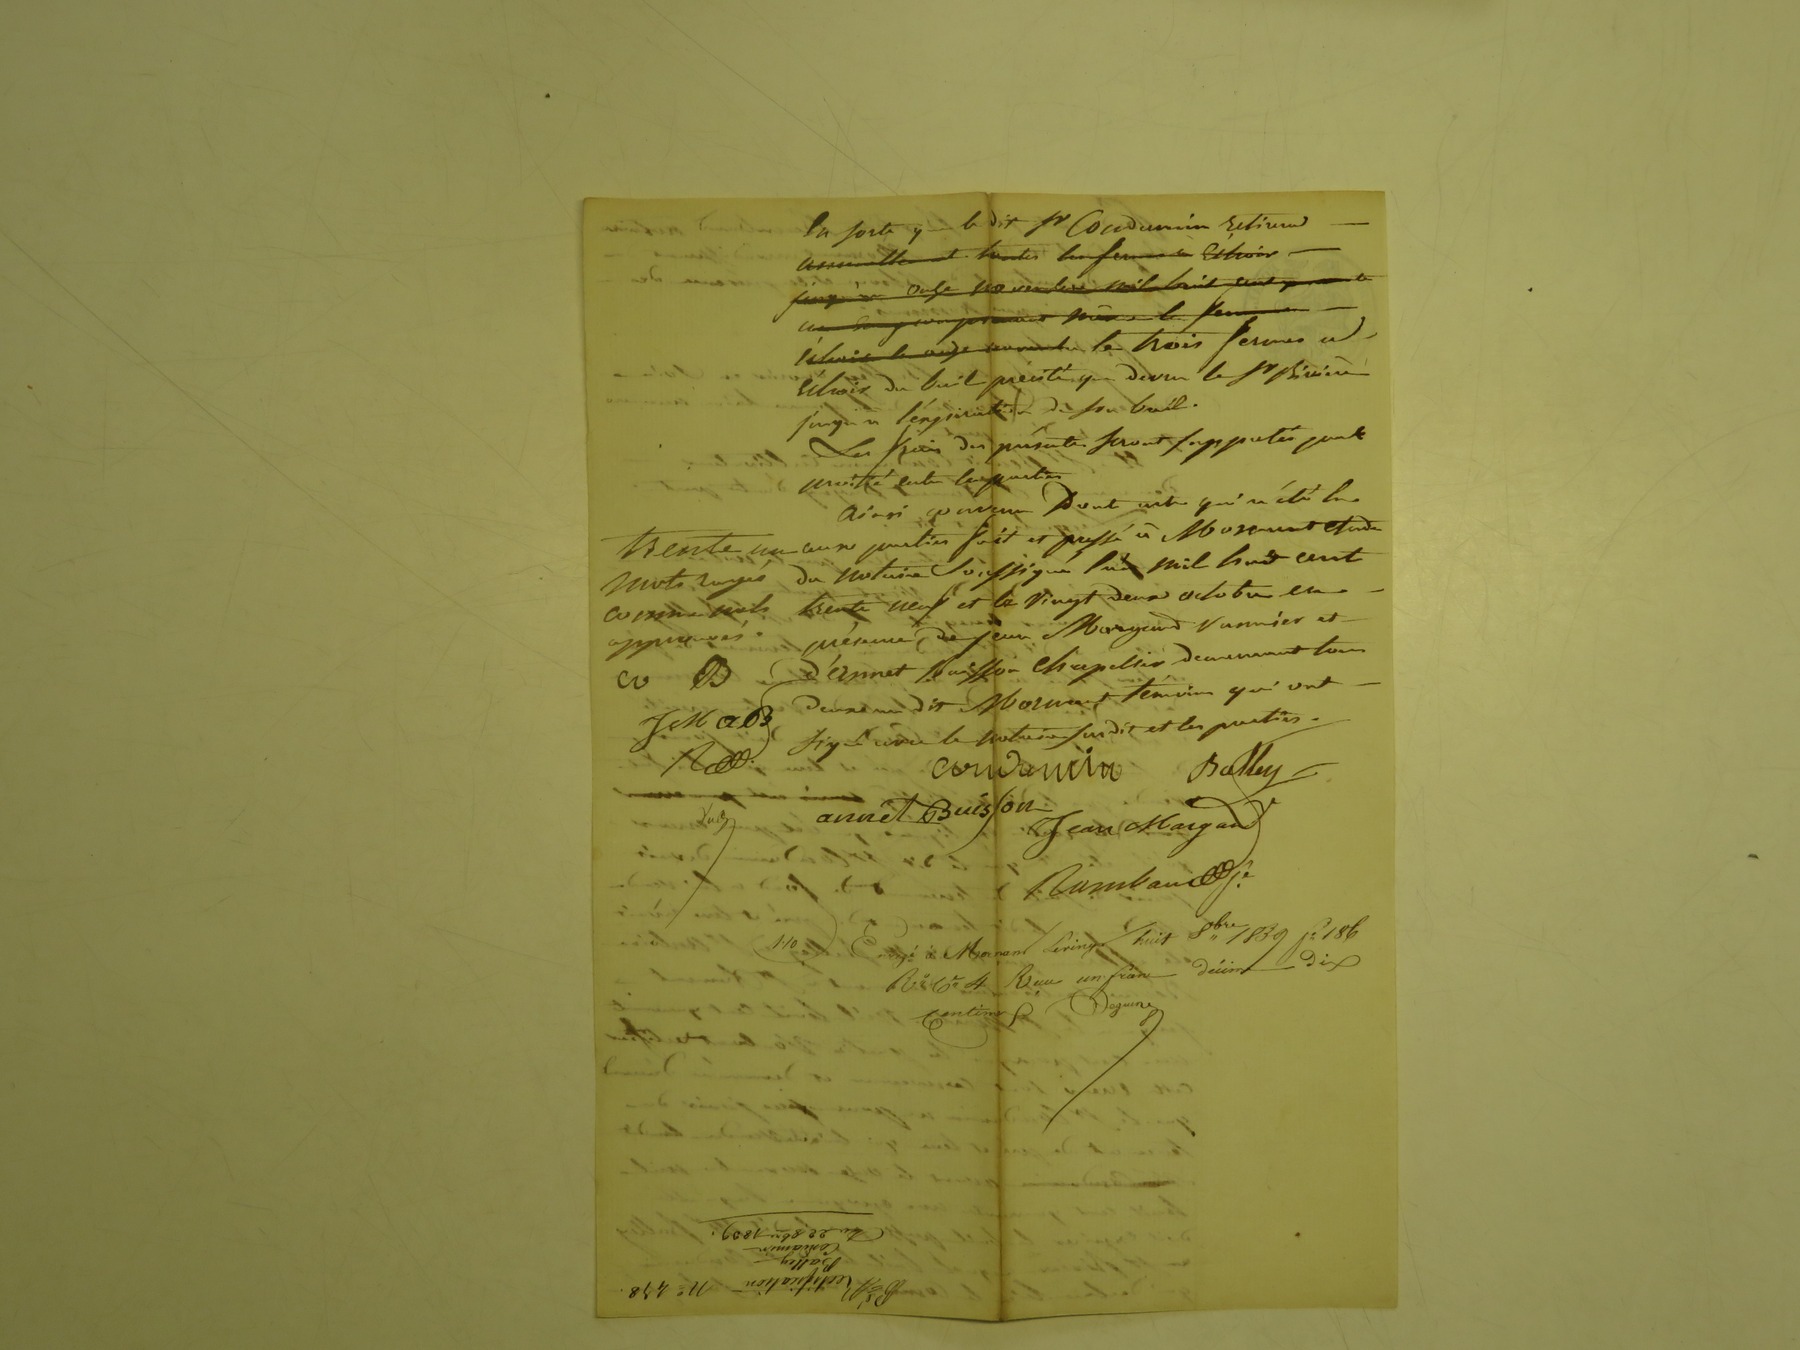 En sorte que le dit Sr Condamin retirera
annuellement toutes les fermes à échoir
jusqu'au onze novembre mil huit cent quarante
échoir le onze novembre les trois fermes à
échoir du bail précité que devra le Sr Rivière
jusqu'à l'expiration de son bail.
Les frais des présentes seront supportés par
moitié entre les parties
Ainsi convenu Dont acte qui a été lu
aux parties fait et passé à Mornant étude
du notaire soussigné l'an mil huit cent
trente neuf et le vingt deux octobre en
présence de Jean Margand vannier et
d'Annet Buisson chapelier demeurant tous
deux au dit Mornant témoins qui ont
signé avec le notaire susdit et les parties.
trente un
mots rayés
comme nuls
approuvés.
co B
JM aB
condamin Balley
annet Buisson
Jean Margand
Rambaud
110
Enregé à Mornant le vingt huit 8bre 1839 fo 186
Ro Ce 4 Reçu un franc décime dix
centimes
No 478.
Rectification
Balley
Condamin
Du 22 8bre 1839.